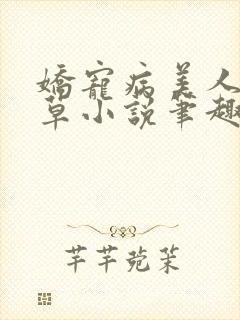 嬌寵病美人
草小說筆趣
芊芊菀茱